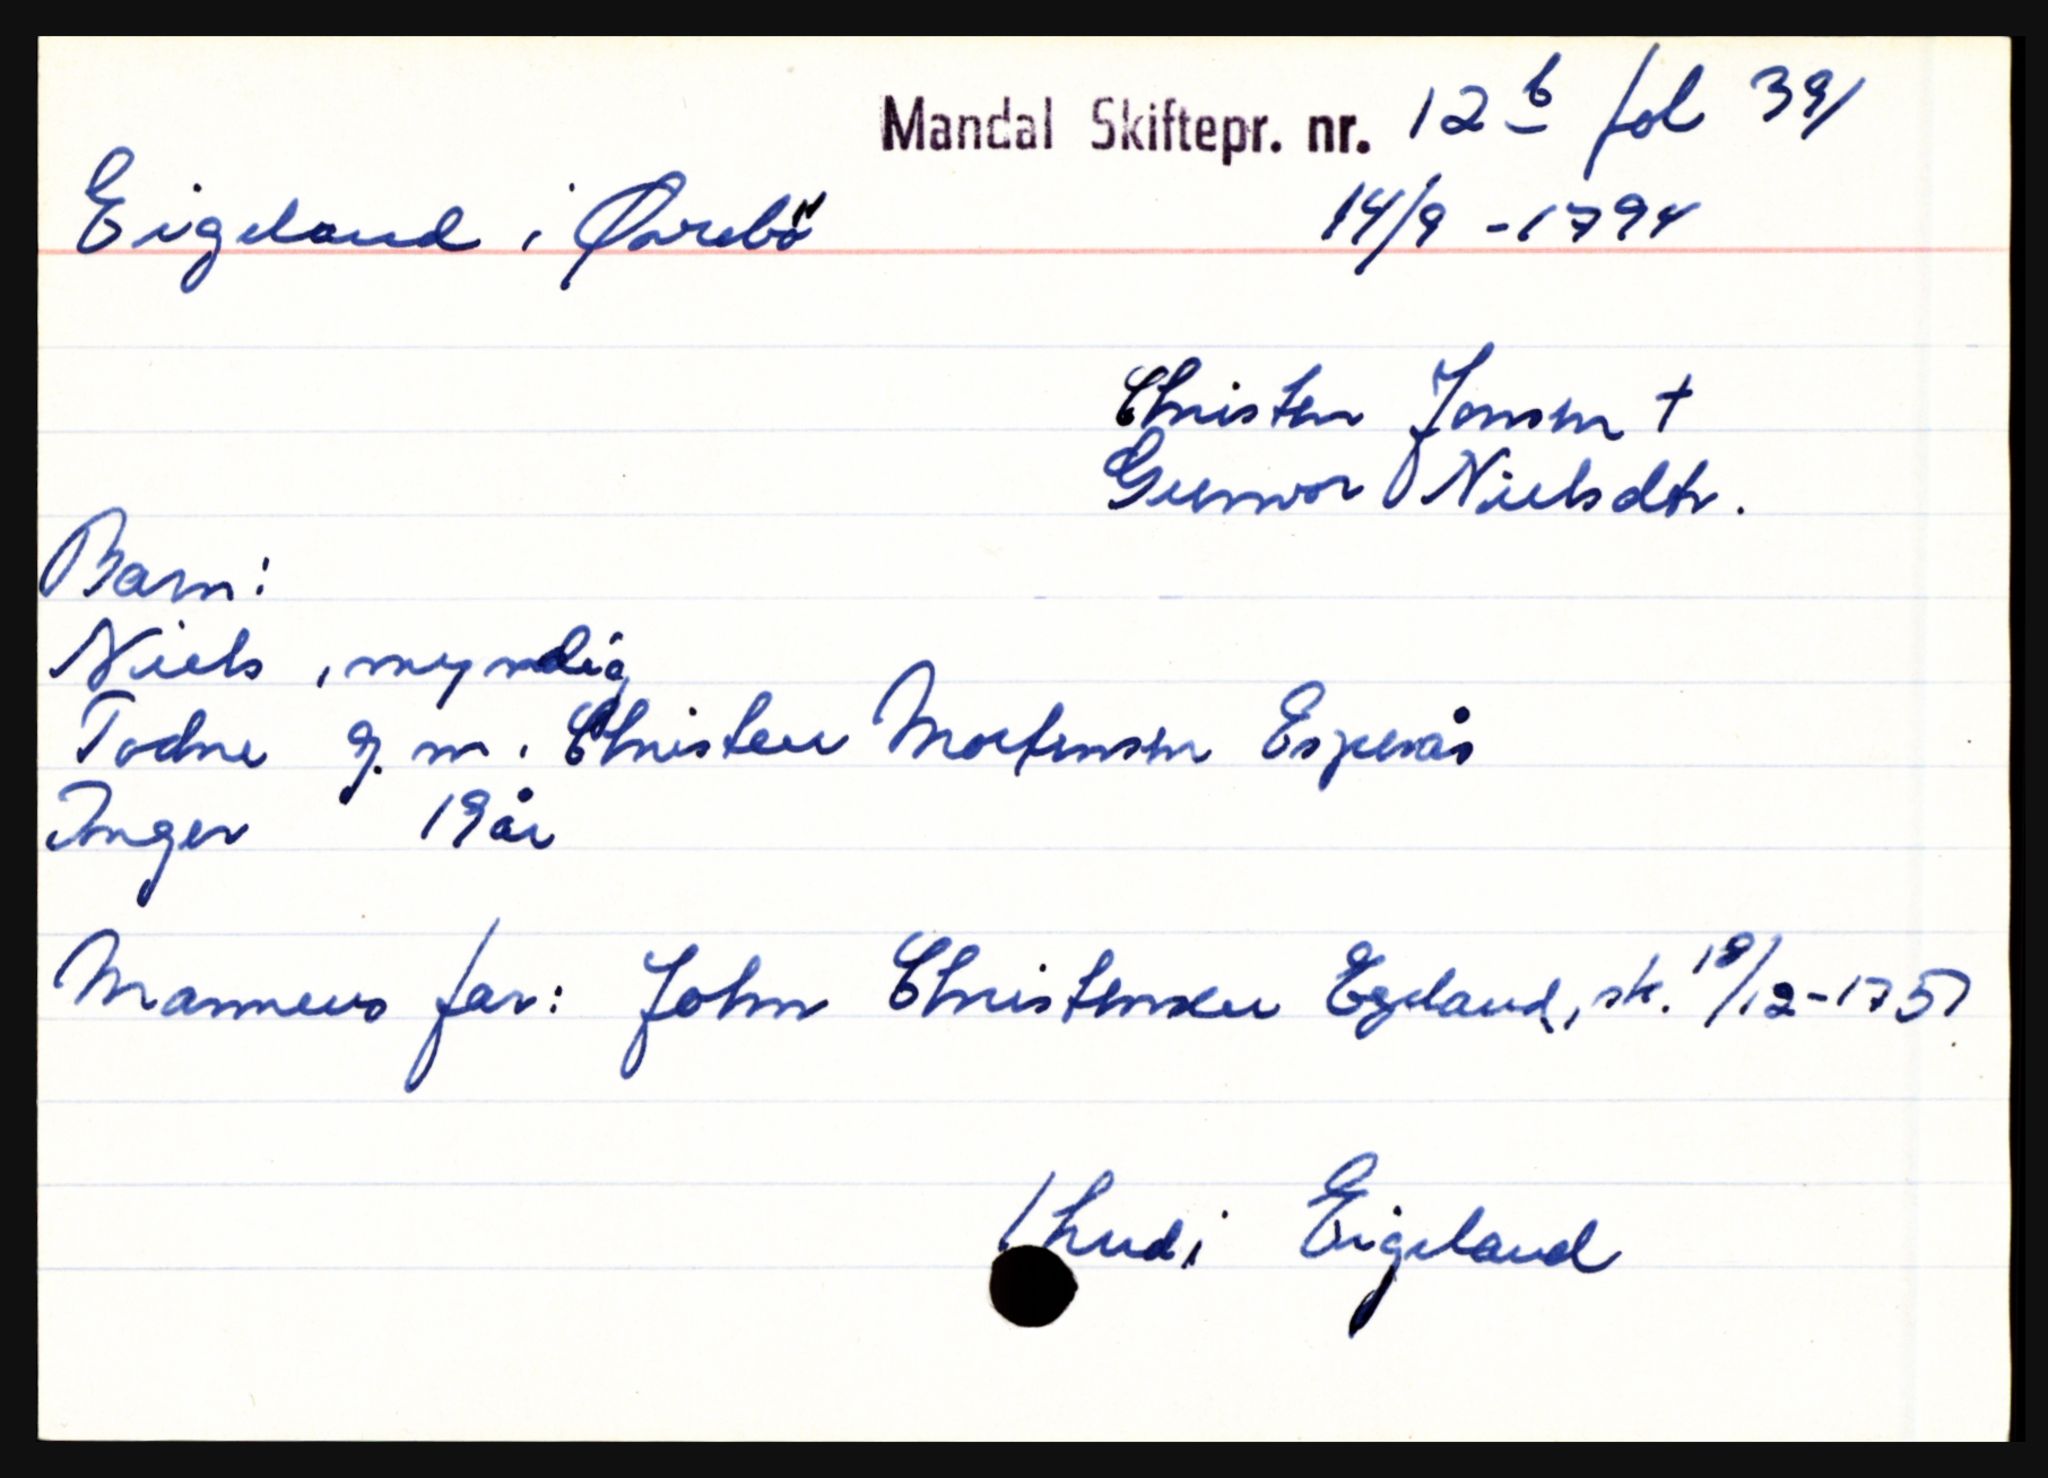 Mandal Skiftepr. nr. 12 b fol 391
Eigeland i Øvrebö 14/9 - 1794
Christen Jonsen +
Gunvor Nielsdtr.
Barn:
Niels, myndig
Todne g. m. Christen Mortensen Esperås
Inger 19 år
Mannens far: John Christensen Egeland, sk. 19/12-1757
Eigeland